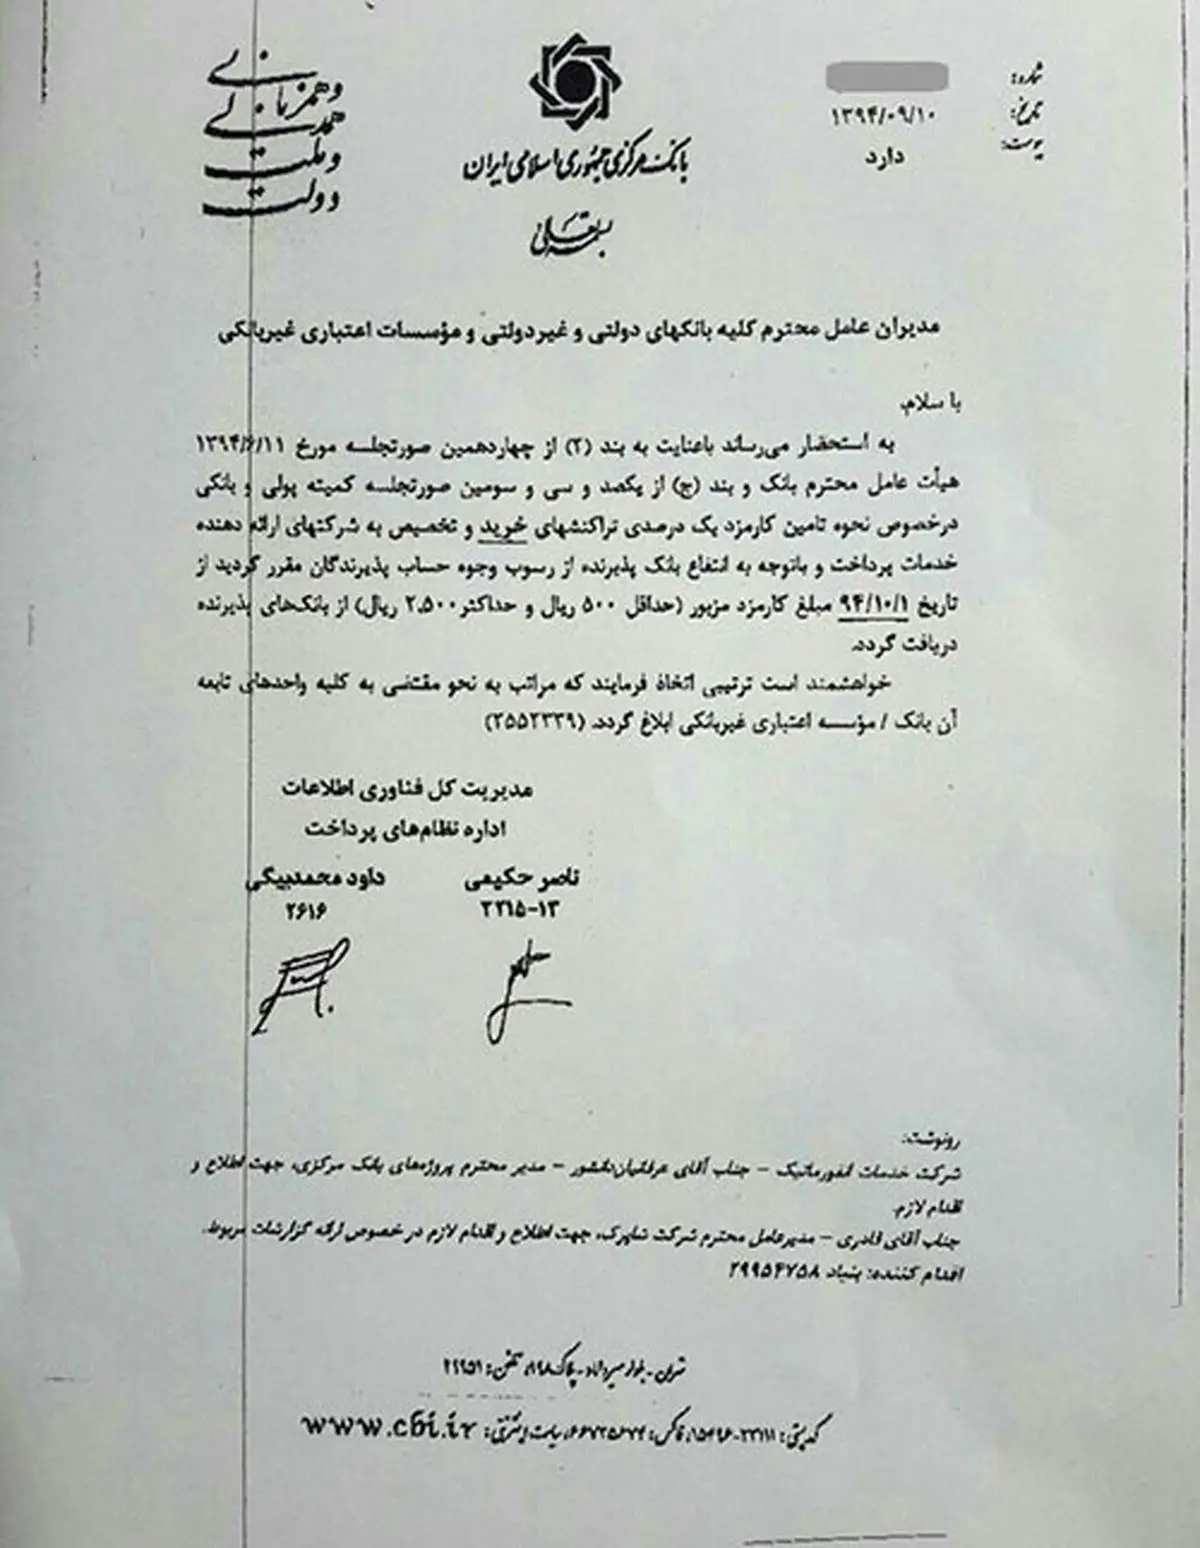 شماره:
تاریخ: ۱۳۹۴/۰۹/۱۰
پیوست: دارد
دولت و ملت همدلی و همزبانی
بانک مرکزی جمهوری اسلامی ایران
بسمه تعالی
مدیران عامل محترم کلیه بانکهای دولتی و غیردولتی و مؤسسات اعتباری غیربانکی
با سلام،
به استحضار می‌رساند باعنایت به بند (۲) از چهاردهمین صورتجلسه مورخ ۱۳۹۴/۶/۱۱
هیأت عامل محترم بانک و بند (ج) از یکصد و سی و سومین صورتجلسه کمیته پولی و بانکی
درخصوص نحوه تامین کارمزد یک درصدی تراکنشهای خرید و تخصیص به شرکتهای ارائه دهنده
خدمات پرداخت و باتوجه به انتفاع بانک پذیرنده از رسوب وجوه حساب پذیرندگان مقرر گردید از
تاریخ ۹۴/۱۰/۱ مبلغ کارمزد مزبور (حداقل ۵۰۰ ریال و حداکثر ۲،۵۰۰ ریال) از بانک‌های پذیرنده
دریافت گردد.
خواهشمند است ترتیبی اتخاذ فرمایند که مراتب به نحو مقتضی به کلیه واحدهای تابعه
آن بانک / مؤسسه اعتباری غیربانکی ابلاغ گردد. (۲۵۵۲۳۳۹)
مدیریت کل فناوری اطلاعات
اداره نظام‌های پرداخت
ناصر حکیمی داود محمدبیگی
۲۲۱۵-۱۳ ۲۶۱۶
رونوشت:
شرکت خدمات انفورماتیک – جناب آقای عرفانیان‌دانشور – مدیر محترم پروژه‌های بانک مرکزی، جهت اطلاع و
اقدام لازم.
جناب آقای قادری – مدیرعامل محترم شرکت شاپرک، جهت اطلاع و اقدام لازم در خصوص ارائه گزارشات مربوط.
اقدام کننده: بنیاد ۲۹۹۵۴۷۵۸
تهران - بلوار میرداماد - پلاک ۱۹۸، تلفن: ۲۹۹۵۱
کدپستی: ۱۵۴۹۶-۳۳۱۱۱، فاکس: ۶۶۷۳۵۶۷۴، سایت اینترنتی: www.cbi.ir